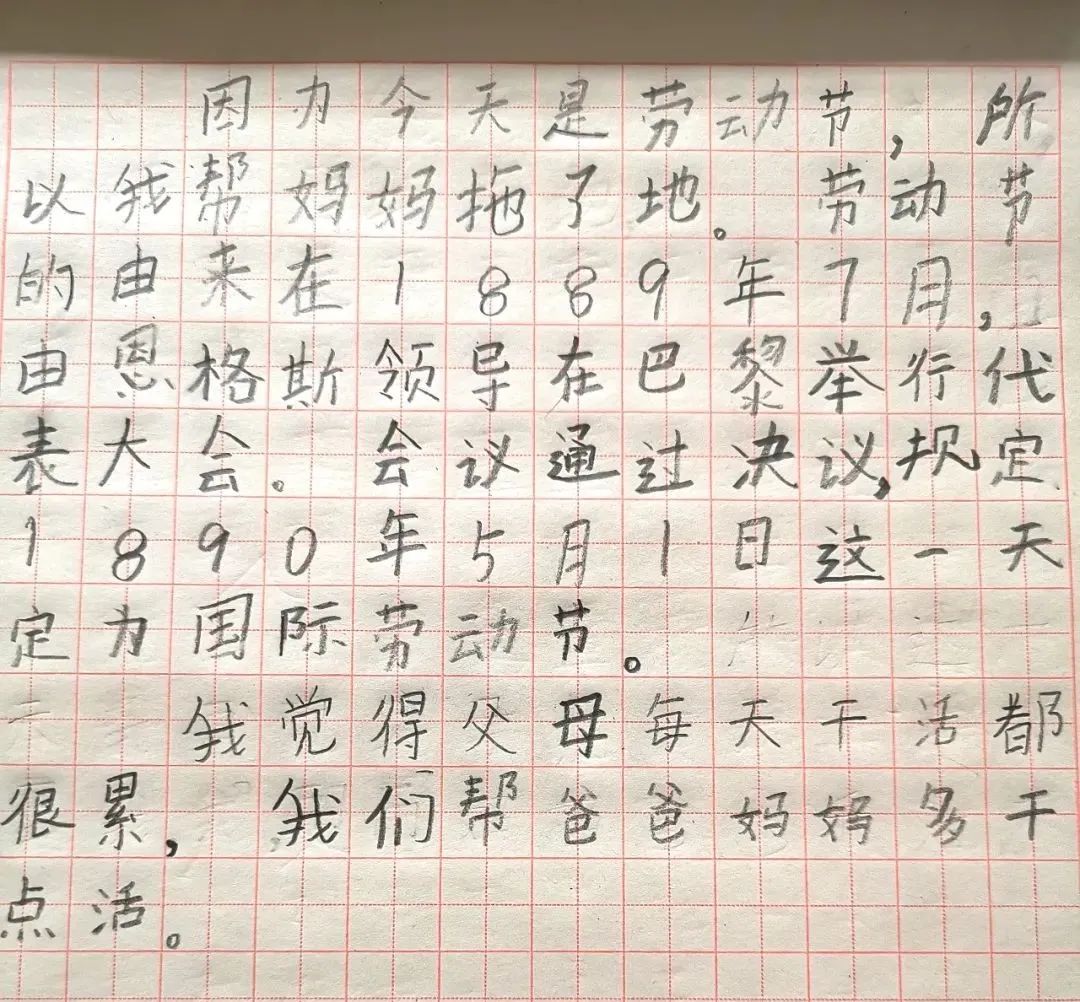 因为今天是劳动节，所
以我帮妈妈拖了地。劳动节
的由来在1889年7月，
由恩格斯领导在巴黎举行代
表大会。会议通过决议，规定
1890年5月1日这一天
定为国际劳动节。
我觉得父母每天干活都
很累，我们帮爸爸妈妈多干
点活。